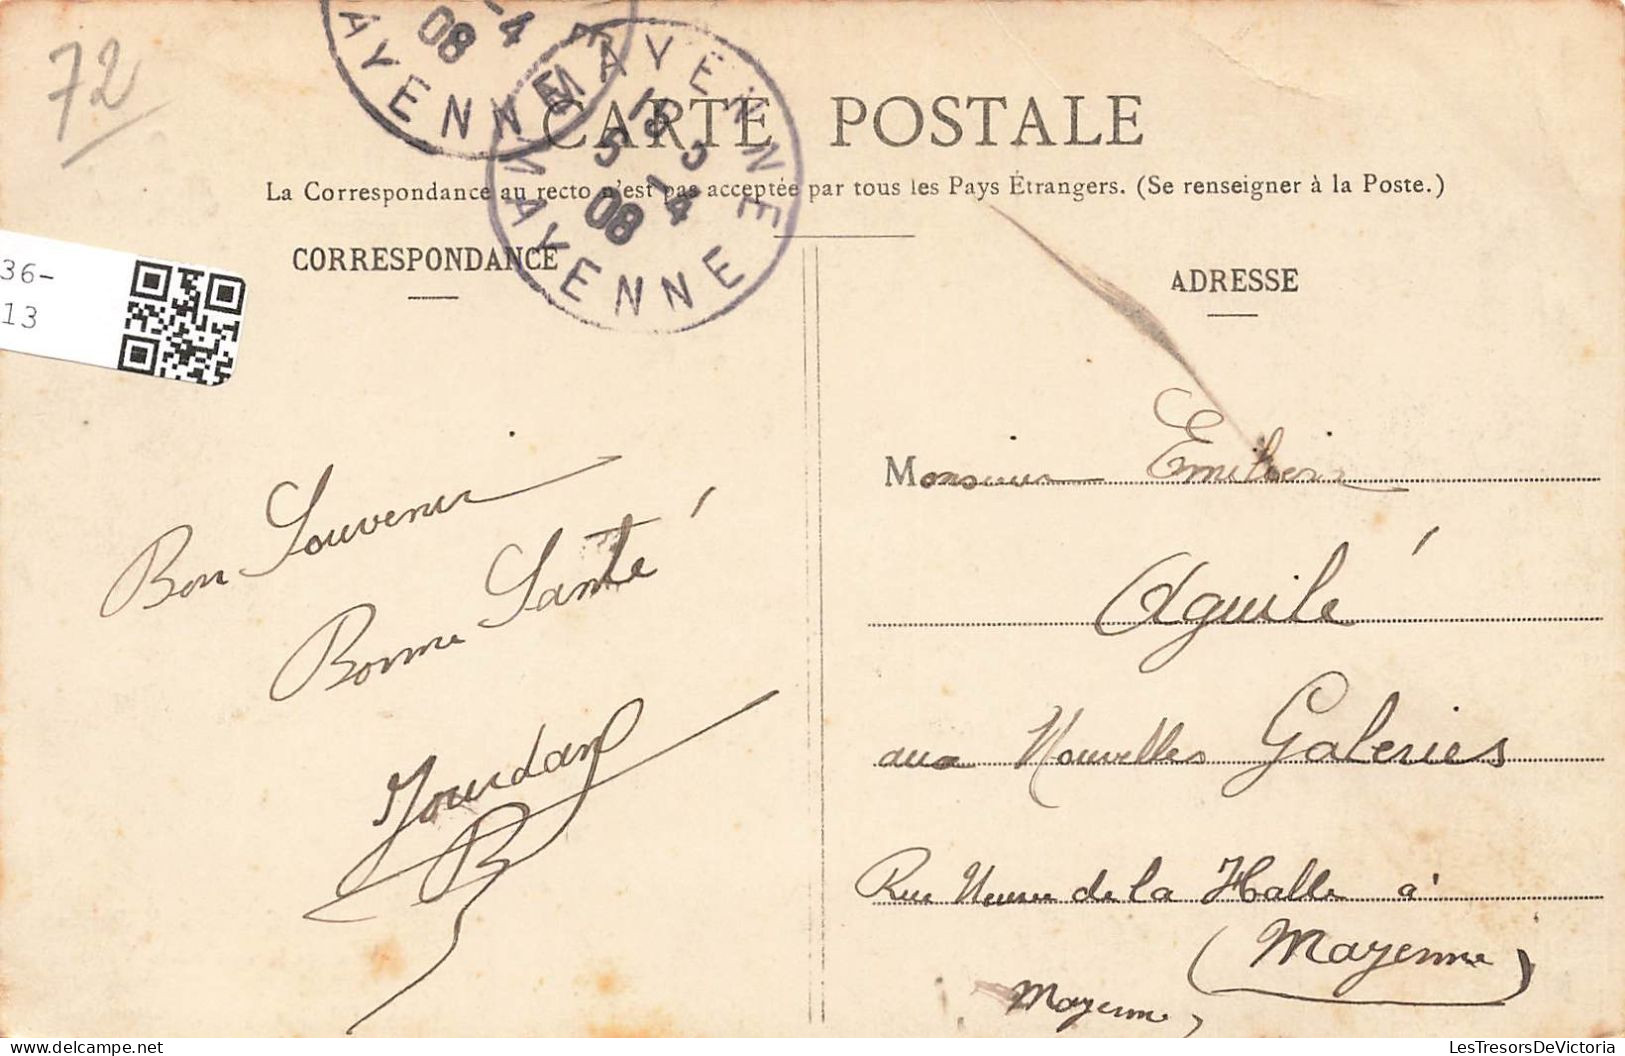 72
AYENNE
-4
08
MAYENNE
15
5 5
-4
08
MAYENNE
CARTE POSTALE
La Correspondance au recto n'est pas acceptée par tous les Pays Étrangers. (Se renseigner à la Poste.)
36-
13
CORRESPONDANCE
ADRESSE
Bon Souvenir
Bonne Santé
Jourdan
Monsieur
Aguilé
aux Nouvelles Galeries
Rue Neuve de la Halle à
(Mayenne)
Mayenne
LesTresorsDeVictoria